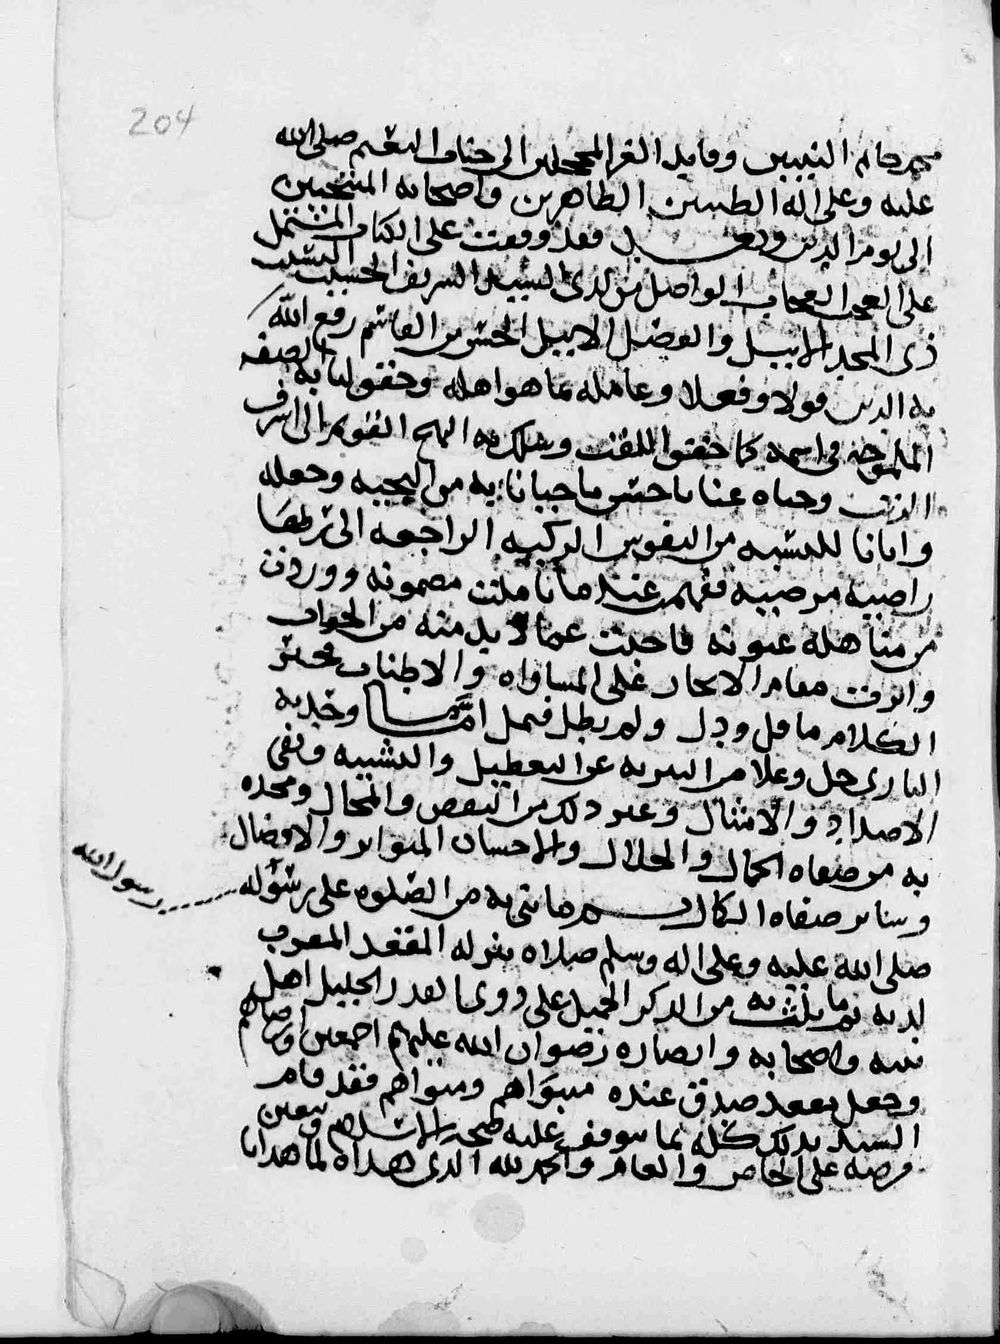 204
محمد خاتم النبيين وقايد الغر المحجلين الى جنات النعيم صلى الله
عليه وعلى اله الطيبين الطاهرين واصحابه المنتخبين
الى يوم الدين وبعد فقد وقفت على الكتاب المشتمل
على العجب العجاب الواصل من لدى السيد الشريف الحسيب النسيب
ذى المجد الاثيل والفضل الاسل الحسن بن القاسم رفع الله
به الدين قولا وفعلا وعامله بما هو اهله وحقق لنا به الصفه
الملموحة فى اسمه كما حقق اللقب وسلك به النهج القويم الى اشرف
الرتب وحباه عنا باحسن ما حبانا به من التحيه وجعله
وايانا للتشبه من النفوس الزكيه الراجعه الى ربها
راضية مرضيه فهمت عند ما تاملت مضمونه ووردت
من مناهله عيونه فاجبت عما لا بد منه من الجواب
واثرت مقام الايجاز على المساواه والاطناب فخير
الكلام ما قل ودل ولم يطل فيمل وحد به
البارى جل وعلا من التنزيه عن التعطيل والتشبيه ونفى
الاضداد والامثال وغير ذلك من النقص والمحال ومجده
به من صفاه الجمال والجلال والاحسان المتواتر والافضال
وساير صفاه الكمال ثم ما ثنى به من الصلوه على رسوله
رسول الله
صلى الله عليه وعلى اله وسلم صلاه تنزله المقعد المقرب
لديه ثم ما ثلث به من الذكر الجميل على ذوى القدر الجليل اهل
بيته واصحابه وانصاره رضوان الله عليهم اجمعين وارضاهم
وجعل مقعد صدق عنده مبواهم ومثواهم فقد قام
السيد بذلك كله بما يتوقف عليه صحة الاسلام وتعين
فرضه على الخاص والعام والحمد لله الذى هداه لما هدانا